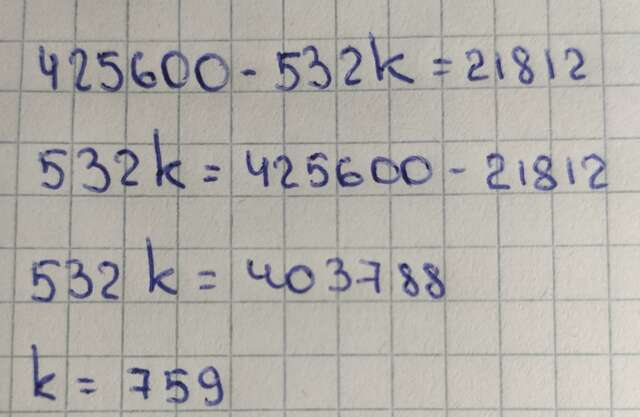 425600 - 532k = 21812
532k = 425600 - 21812
532 k = 403788
k = 759